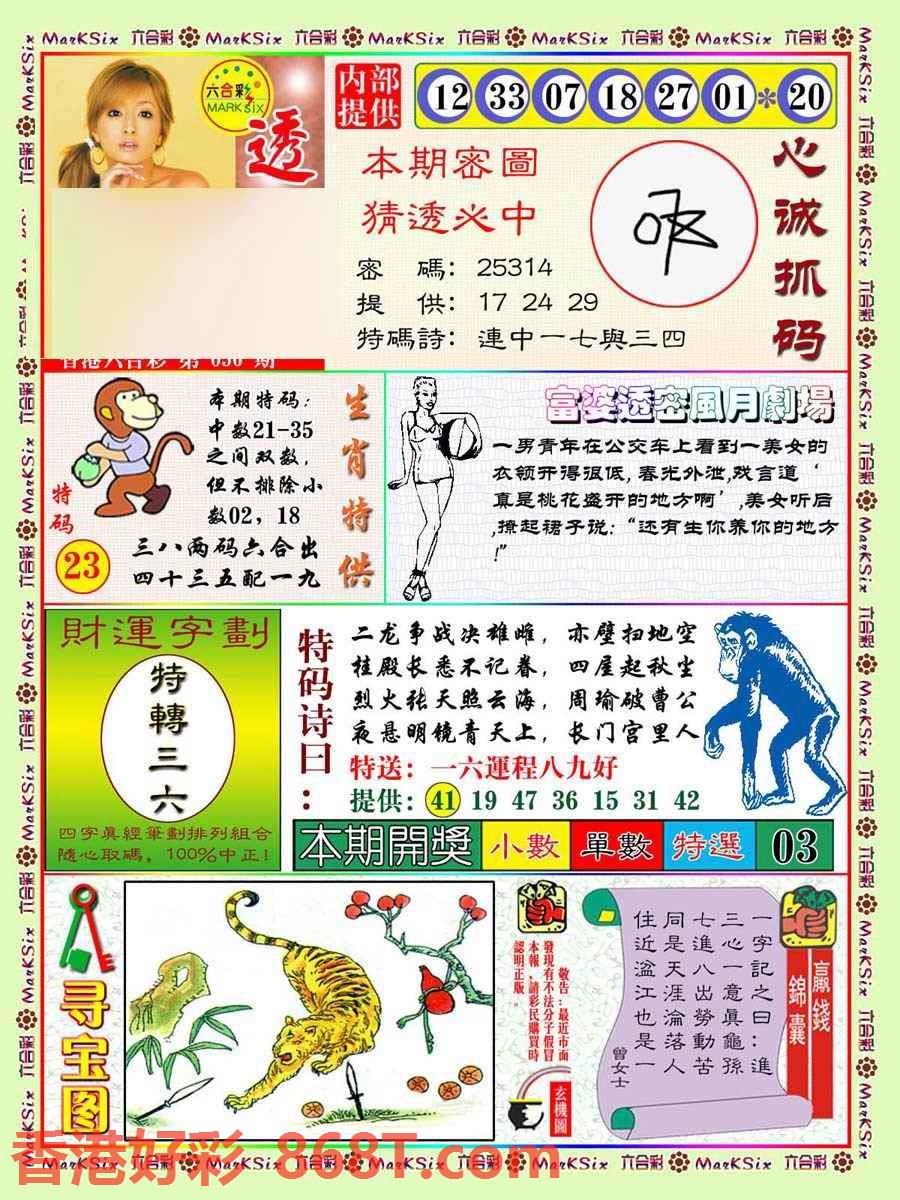 MarKSix 六合彩 MarKSix 六合彩 MarKSix 六合彩 MarKSix 六合彩 MarKSix 六合彩
六合彩
MARK six
透
内部
提供
12 33 07 18 27 01 * 20
本期密圖
猜透必中
密 碼：25314
提 供：17 24 29
特碼詩：連中一七與三四
心诚抓码
香港六合彩 第 期
本期特码：
中数21-35
之间双数，
但不排除小
数02，18
三八两码六合出
四十三五配一九
特码
23
生肖特供
富婆透密風月劇場
一男青年在公交车上看到一美女的
衣领开得很低，春光外泄，戏言道‘
真是桃花盛开的地方啊’，美女听后
，撩起裙子说：“还有生你养你的地方
！”
財運字劃
特轉三六
四字真經筆劃排列組合
隨心取碼，100%中正！
特码诗曰：
二龙争战决雄雌，赤壁扫地空
桂殿长悉不记春，四屋起秋尘
烈火张天照云海，周瑜破曹公
夜悬明镜青天上，长门宫里人
特送：一六運程八九好
提供：41 19 47 36 15 31 42
本期開獎 小數 單數 特選 03
寻宝图
敬告：最近市面
發現有不法分子假冒
本報，請彩民購買時
認明正版。
玄機圖
贏錢
錦囊
一字記之曰：進
三心一意真龜孫
七進八出勞動苦
同是天涯淪落人
住近湓江也是一
曾女士
香港好彩.868T.com
MarKSix 六合彩 MarKSix 六合彩 MarKSix 六合彩 MarKSix 六合彩 MarKSix 六合彩